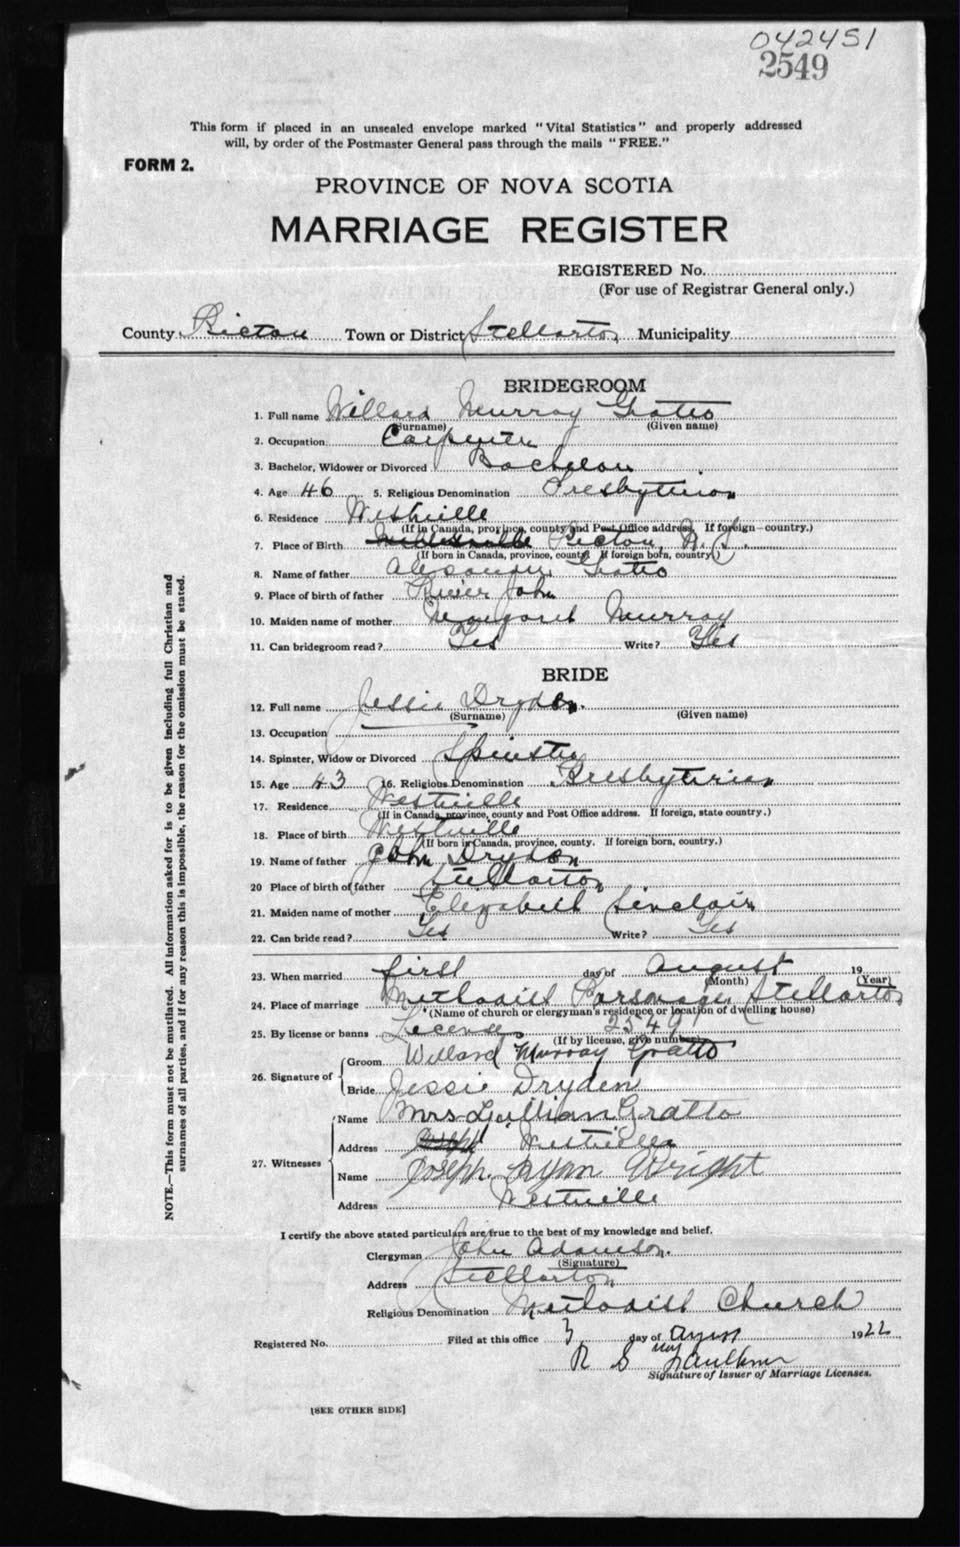 042451
2549
This form if placed in an unsealed envelope marked "Vital Statistics" and properly addressed
will, by order of the Postmaster General pass through the mails "FREE."
FORM 2.
PROVINCE OF NOVA SCOTIA
MARRIAGE REGISTER
REGISTERED No.
(For use of Registrar General only.)
County Pictou Town or District Stellarton Municipality
BRIDEGROOM
1. Full name Willard Murray Gratto
(Surname) (Given name)
2. Occupation Carpenter
3. Bachelor, Widower or Divorced Bachelor
4. Age 46 5. Religious Denomination Presbyterian
6. Residence Westville
(If in Canada, province, county and Post Office address. If foreign—country.)
7. Place of Birth Pictou, N.S.
(If born in Canada, province, county. If foreign born, country.)
8. Name of father Alexander Gratto
9. Place of birth of father River John
10. Maiden name of mother Margaret Murray
11. Can bridegroom read? Yes Write? Yes
BRIDE
12. Full name Jessie Dryden.
(Surname) (Given name)
13. Occupation
14. Spinster, Widow or Divorced Spinster
15. Age 43 16. Religious Denomination Presbyterian
17. Residence Westville
(If in Canada, province, county and Post Office address. If foreign, state country.)
18. Place of birth Westville
(If born in Canada, province, county. If foreign born, country.)
19. Name of father John Dryden
20 Place of birth of father Stellarton
21. Maiden name of mother Elizabeth Sinclair
22. Can bride read? Yes Write? Yes
23. When married first day of August 19
(Month) (Year)
24. Place of marriage Methodist Parsonage Stellarton
(Name of church or clergyman's residence or location of dwelling house)
25. By license or banns License 2549
(If by license, give number)
26. Signature of Groom Willard Murray Gratto
Bride Jessie Dryden
27. Witnesses Name Mrs Lillian Gratto
Address Westville
Name Joseph Ryan Wright
Address Westville
I certify the above stated particulars are true to the best of my knowledge and belief.
Clergyman John Adamson.
(Signature)
Address Stellarton
Religious Denomination Methodist Church
Registered No. Filed at this office 3 day of August 1922
R S Faulkner
Signature of Issuer of Marriage Licenses.
[SEE OTHER SIDE]
NOTE.—This form must not be mutilated. All information asked for is to be given including full Christian and
surnames of all parties, and if for any reason this is impossible, the reason for the omission must be stated.